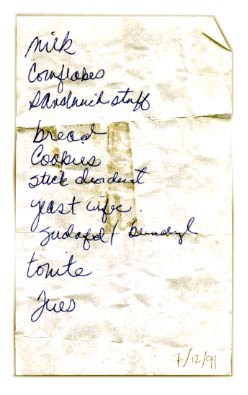 milk
Cornflakes
Sandwich stuff
bread
Cookies
stick deodorant
yeast
Sudafed / Benadryl
tonite
7/12/91